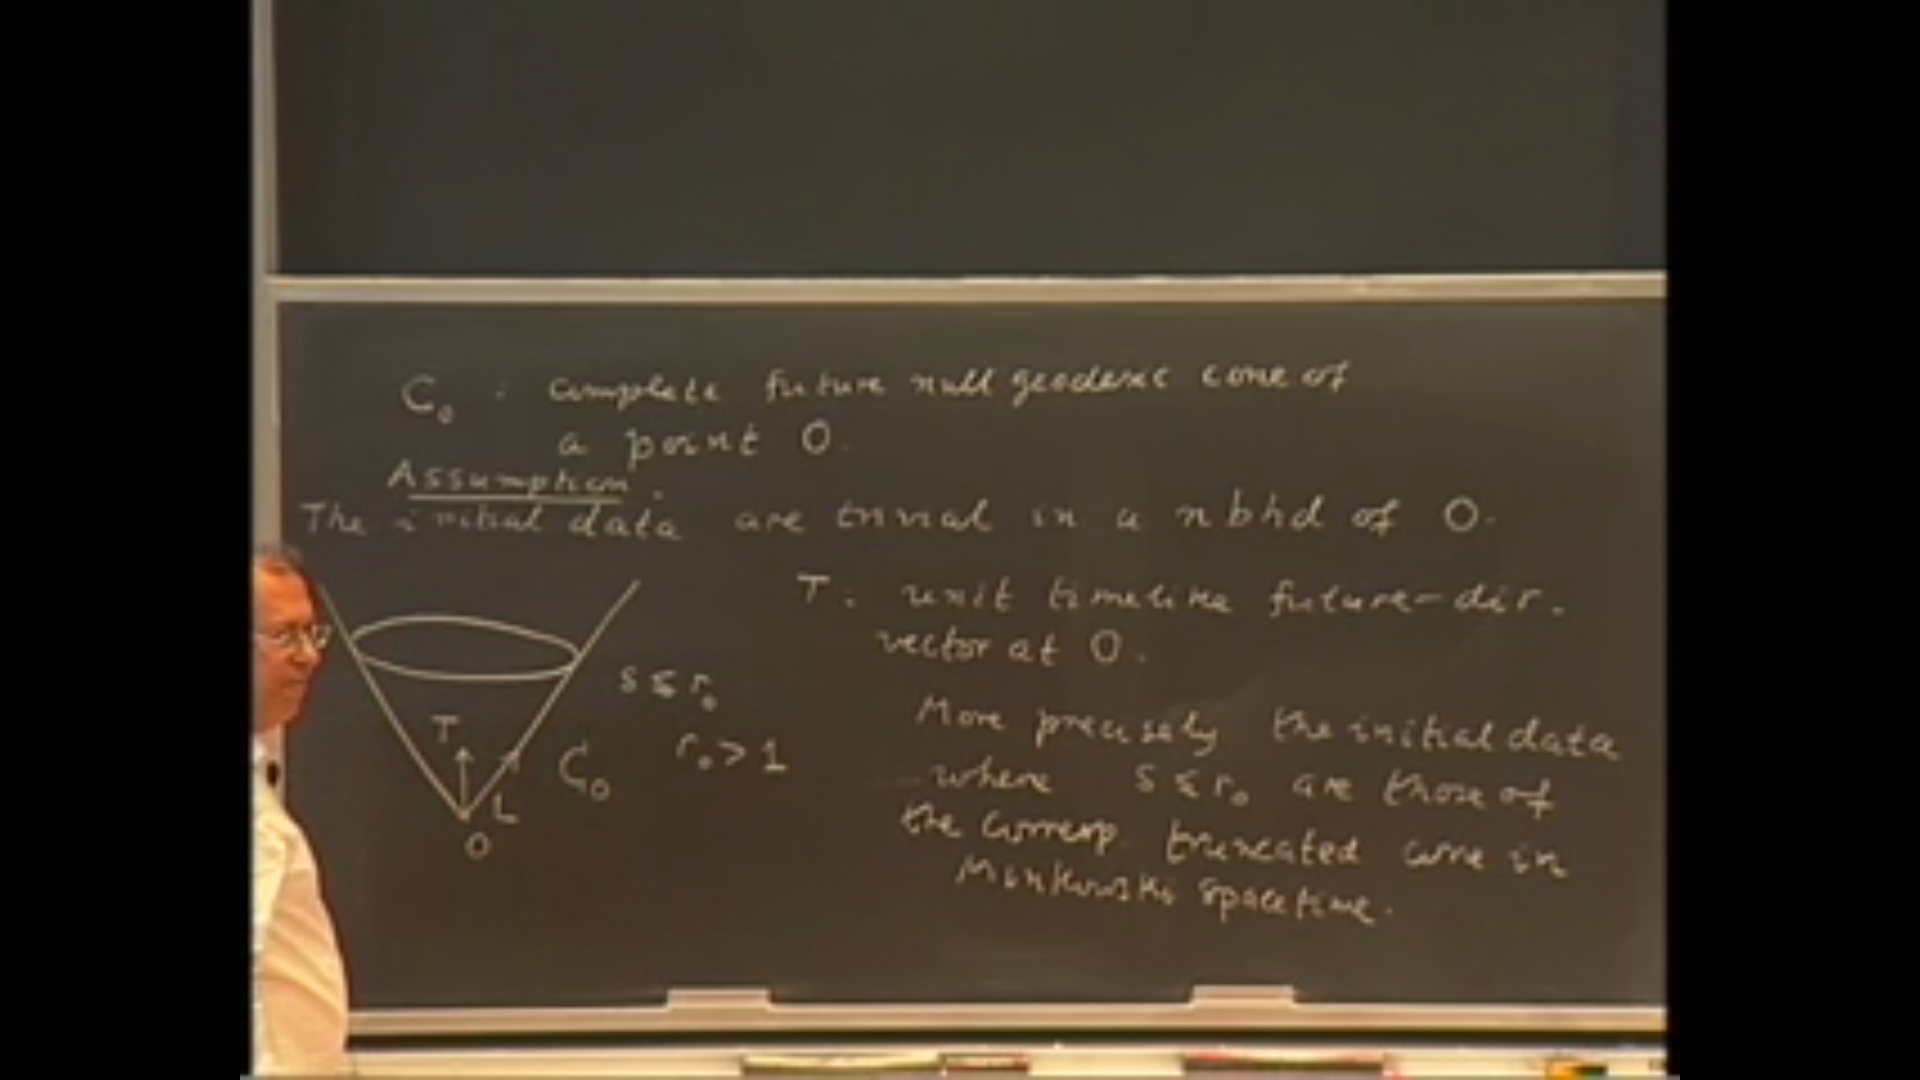 C₀ : complete future null geodesic cone of
a point O.
Assumption.
The initial data are trivial in a nbhd of O.
T. unit timelike future-dir.
vector at O.
s ≤ r₀
r₀ > 1
T
L
C₀
O
More precisely the initial data
where s ≤ r₀ are those of
the corresp. truncated cone in
Minkowski spacetime.